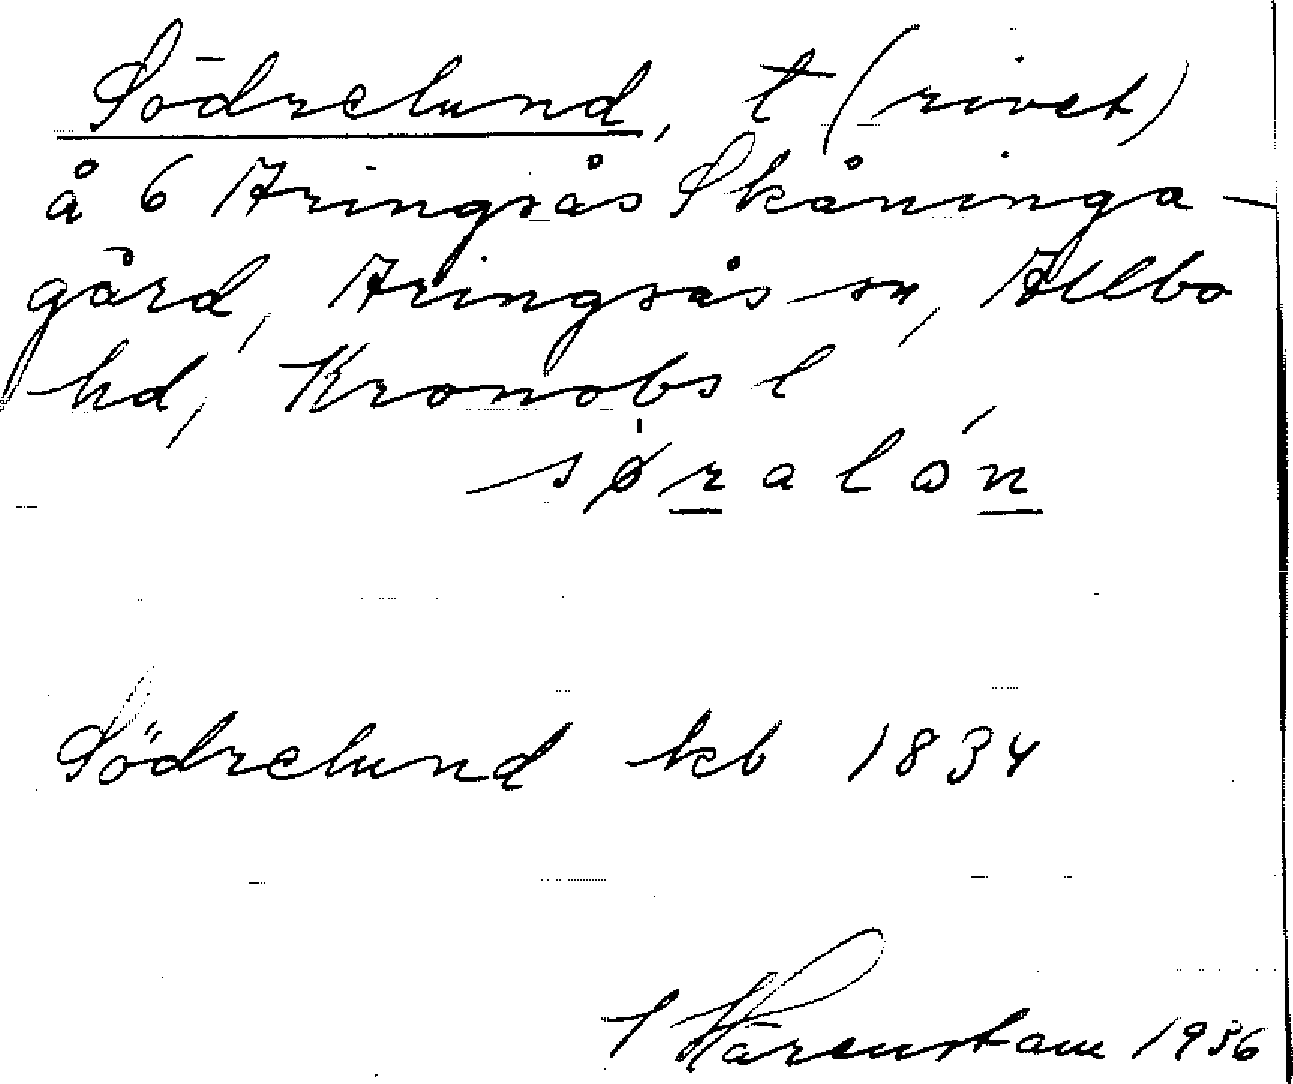 Södrelund, t (rivet)
å 6 Aringsås Skåninga-
gård, Aringsås sn, Allbo
hd, Kronobs l
søralón
Södrelund kb 1834
Härenstam 1936